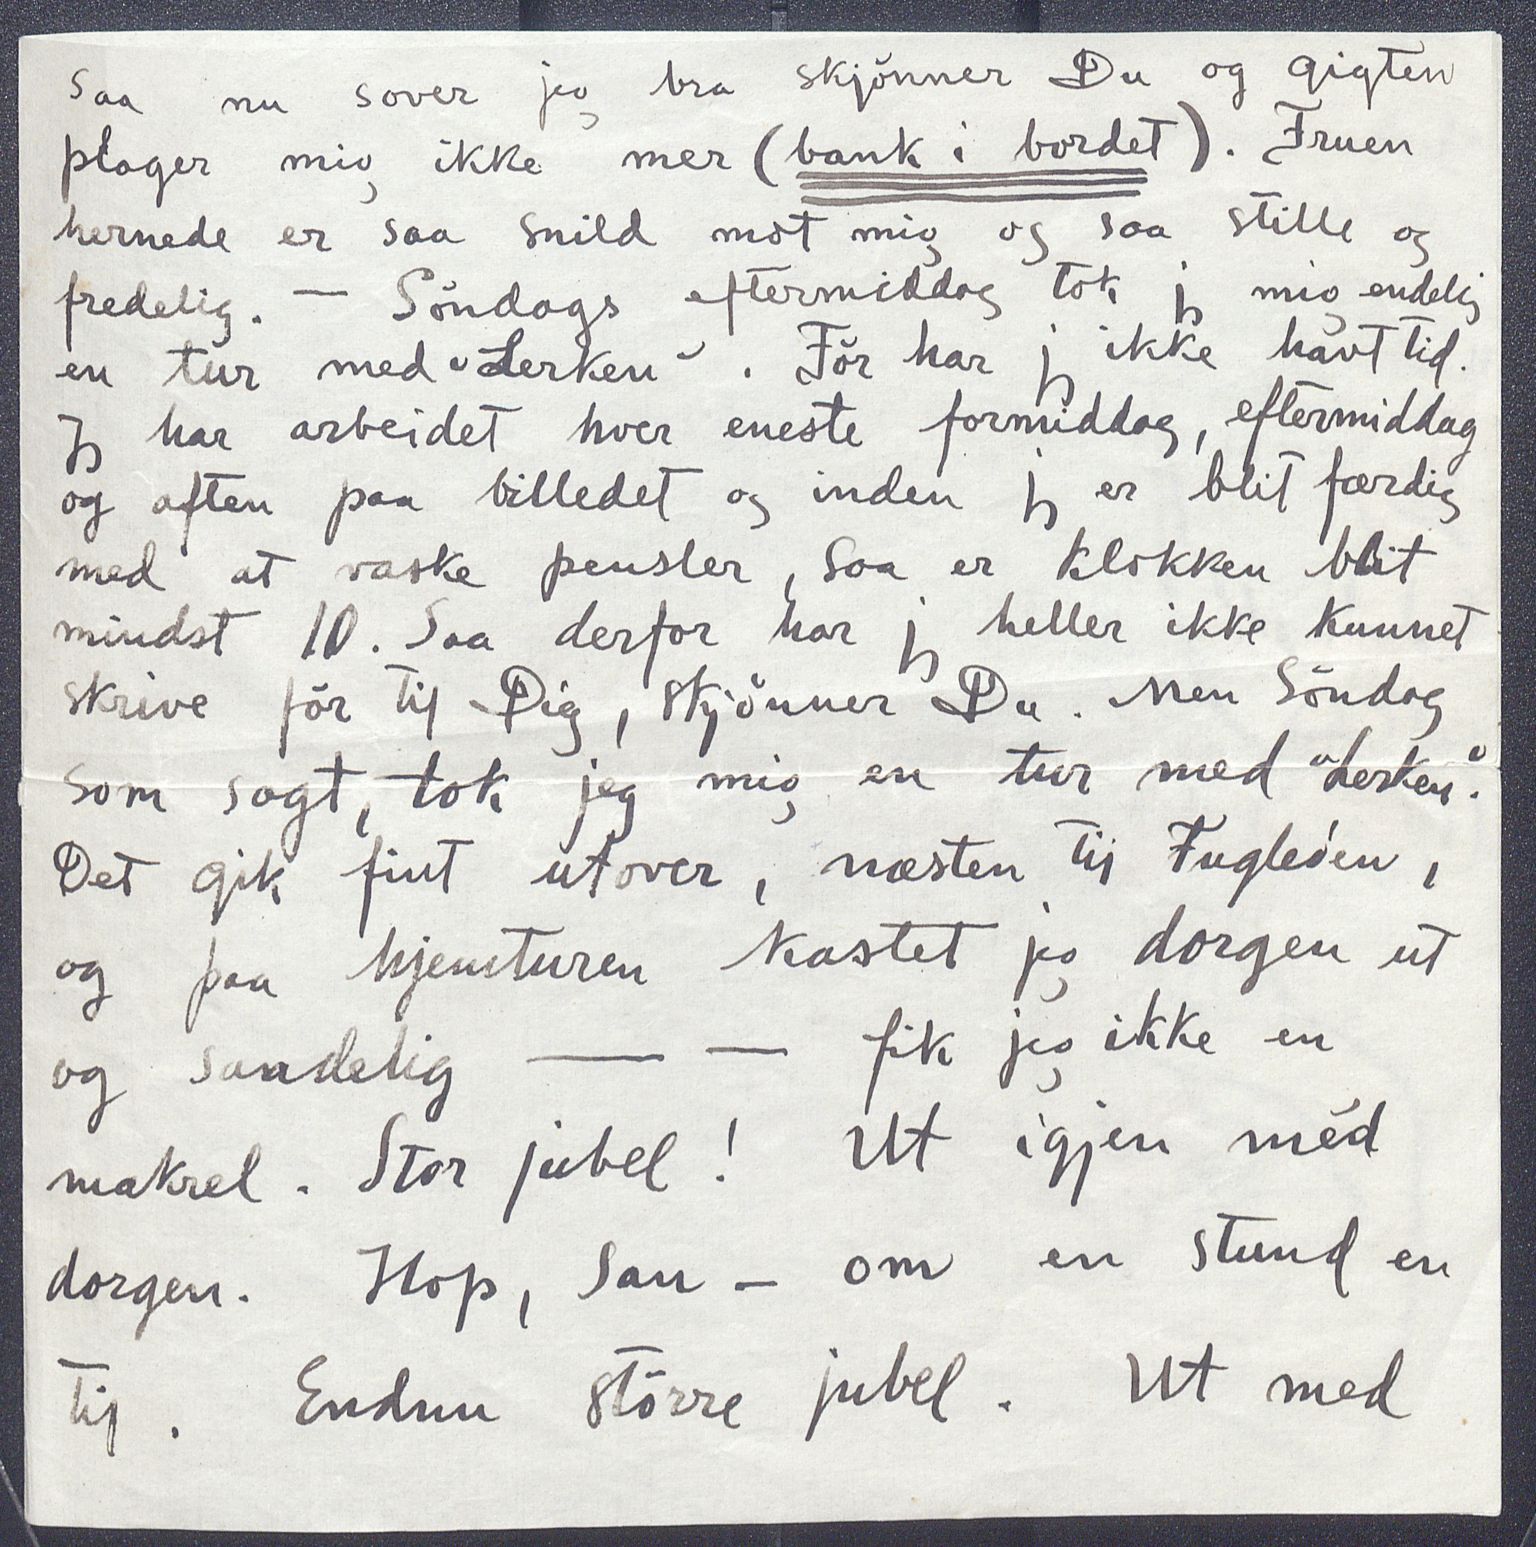 saa nu sover jeg bra skjönner Du og gigten
plager mig ikke mer (bank i bordet). Fruen
hernede er saa snild mot mig og saa stille og
fredelig. — Söndags eftermiddag tok jg mig endelig
en tur med "Lerken". För har jg ikke havt tid.
Jg har arbeidet hver eneste formiddag, eftermiddag
og aften paa billedet og inden jg er blit færdig
med at vaske pensler, saa er klokken blit
mindst 10. Saa derfor har jg heller ikke kunnet
skrive för til Dig, skjönner Du. Men Söndag
som sagt, tok jeg mig en tur med "Lerken".
Det gik fint utover, næsten til Fugleöen,
og paa hjemturen kastet jeg dorgen ut
og sandelig — — fik jeg ikke en
makrel. Stor jubel! Ut igjen med
dorgen. Hop, san — om en stund en
til. Endnu större jubel. Ut med